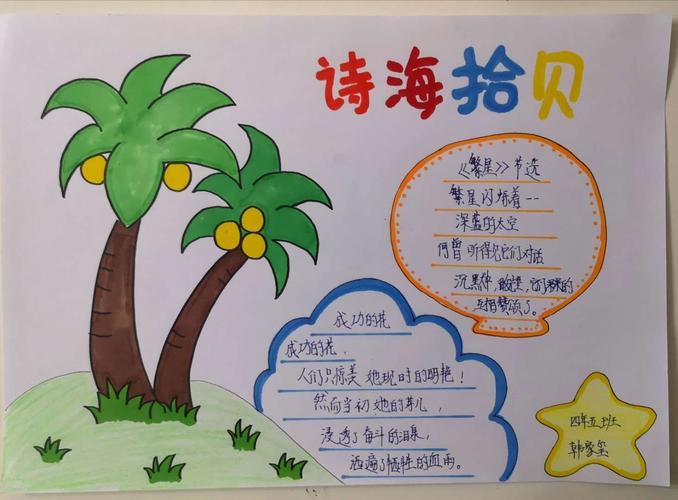 诗海拾贝
《繁星》节选
繁星闪烁着--
深蓝的太空
何曾听得见它们对话
沉默中,它们的
互相赞颂了。
成功的花
成功的花,
人们只惊羡她现时的明艳!
然而当初她的芽儿,
浸透了奋斗的泪泉,
洒遍了牺牲的血雨。
四年五班
韩